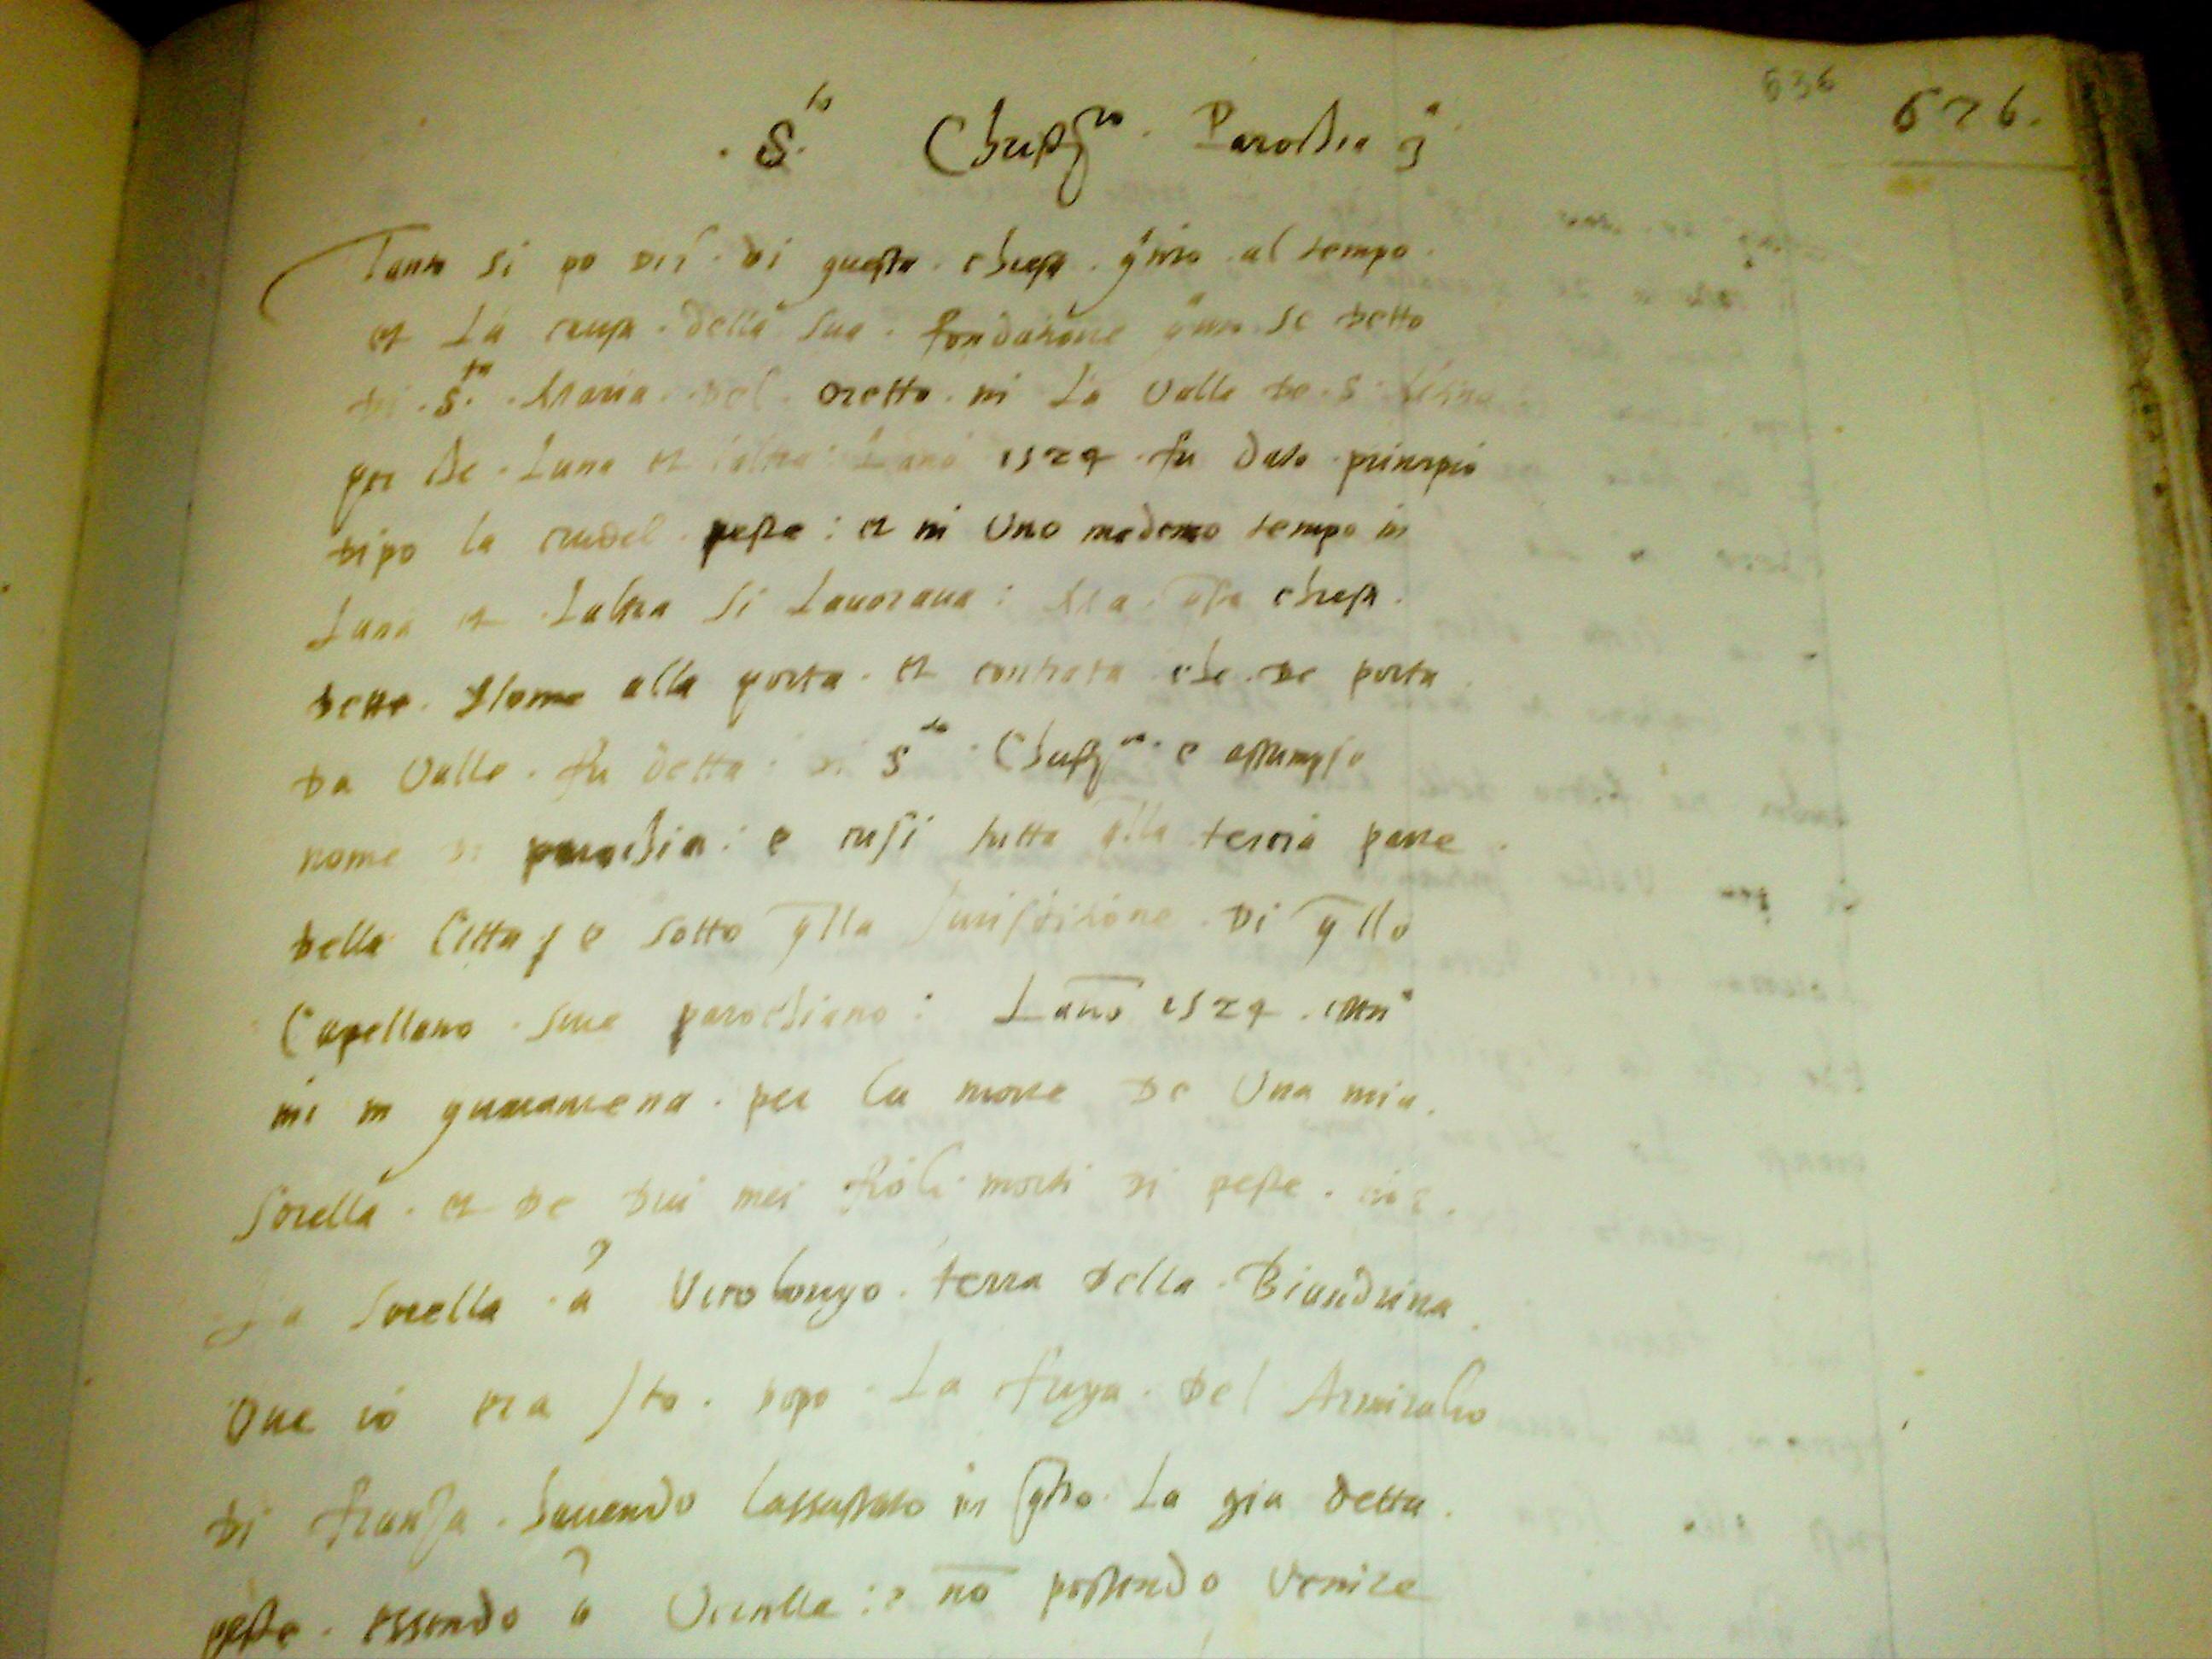 636
626.
.S.to Christ.ro Parochia 3a
Tanto si po dir di questa chiesa q.nto al tempo.
et La causa. della sua. fondatione q.nto se detto
di .S.ta Maria del oretto. in La Valle de. S.
per che. Luna et laltra: Lano 1524 fu dato principio
dipo la crudel. peste: et in Uno medemo tempo in
Luna et Laltra si Lauoraua: Ma. q̅sta chiesa.
dette. Il nome alla porta. et contrata che de porta
da Valle. fu detta: di S.to Christ.ro e assumpse
nome di parochia: e cusi tutta q̅lla tercia parte.
della Citta e sotto q̅lla Jurisditione. Di q̅llo
Capellano. siue parochiano: Lan̅o 1524.
mi in per la morte De Una mia.
Sorella. et De Dui mei fioli morti di peste. cioe.
La Sorella à Verolongo. terra Della. Biandrina.
Oue io era sto. dopo. La fuga. Del Armiralio
di franza. hauendo in La gia detta.
peste. essendo à Vercelle: e no̅ possendo Venire